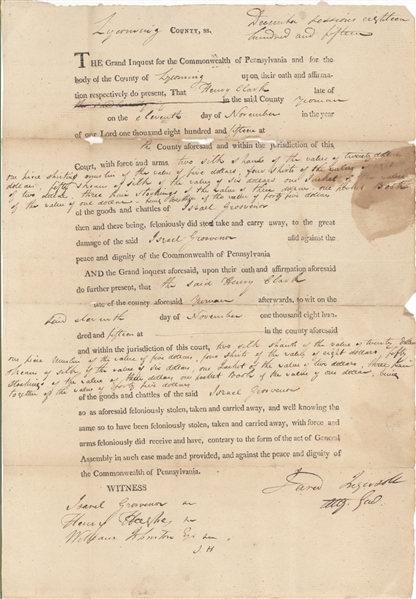 Lycoming COUNTY, ss. December Sessions eighteen
hundred and fifteen
THE Grand Inquest for the Commonwealth of Pennsylvania and for the
body of the County of Lycoming upon, their oath and affirma-
tion respectively do present, That Henry Clark late of
in the said County Yeoman
on the eleventh day of November in the year
of our Lord one thousand eight hundred and fifteen at
the County aforesaid and within the jurisdiction of this
Court, with force and arms two silk shawls of the value of twenty dollars
one piece muslin of the value of five dollars, four shirts of the value of eight
dollars, fifty skeans of silk of the value of six dollars one Jacket of the value
of two dollars, three stockings of the value of three dollars, one pocket Book
of the value of one dollar, being together of the value of forty five dollars
of the goods and chattles of Israel Grosvenor
then and there being, feloniously did steal take and carry away, to the great
damage of the said Israel Grosvenor and against the
peace and dignity of the Commonwealth of Pennsylvania
AND the Grand inquest aforesaid, upon their oath and affirmation aforesaid
do further present, that the said Henry Clark
one of the county aforesaid Yeoman afterwards, to wit on the
said eleventh day of November one thousand eight hun-
dred and fifteen at in the county aforesaid
and within the jurisdiction of this court, two silk shawls of the value of twenty dollars
one piece muslin of the value of five dollars, four shirts of the value of eight dollars, fifty
skeans of silk of the value of six dollars, one Jacket of the value of two dollars, three pair
stockings of the value of three dollars, one pocket Book of the value of one dollar, being
together of the value of forty five dollars
of the goods and chattles of the said Israel Grosvenor
so as aforesaid feloniously stolen, taken and carried away, and well knowing the
same so to have been feloniously stolen, taken and carried away, with force and
arms feloniously did receive and have, contrary to the form of the act of General
Assembly in such case made and provided, and against the peace and dignity of
the Commonwealth of Pennsylvania.
WITNESS
Jared Ingersoll
Atty. Genl.
Israel Grosvenor
Henry Hughes
William Esq
J H